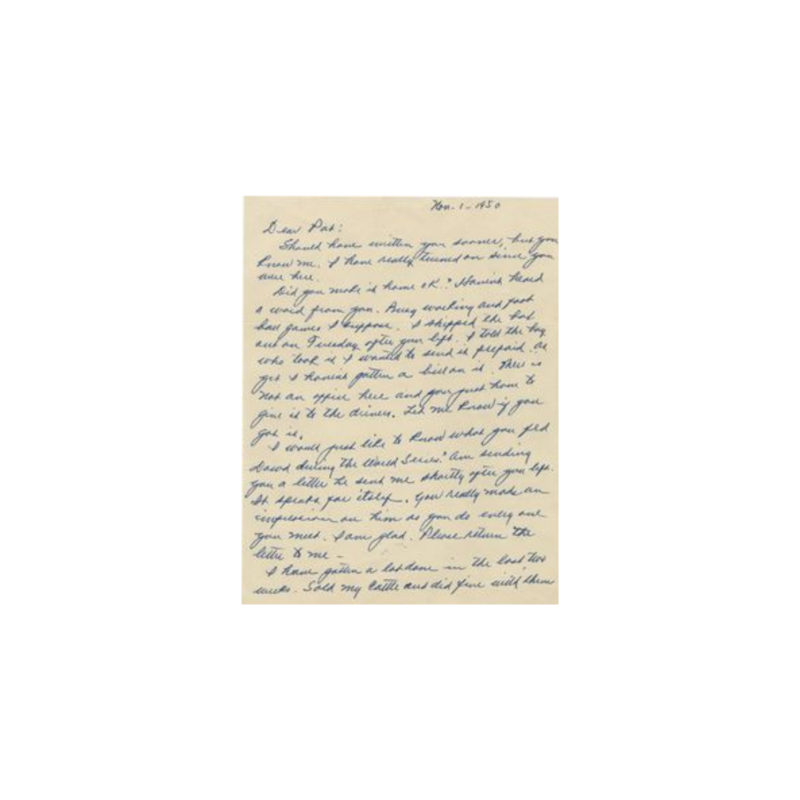 Nov. 1 - 1950
Dear Pat:
Should have written you sooner, but you
know me. I have really turned on since you
were here.
Did you make it home OK? Havent heard
a word from you. Busy working and foot
ball games I suppose. I shipped the
on Tuesday after you left. I told the boy
who took it I wanted to send it prepaid. As
yet I havent gotten a bill on it. There is
not an office here and you just have to
give it to the drivers. Let me know if you
got it.
I would just like to know what you fed
Dowd during the World Series? Am sending
you a letter he sent me shortly after you left.
It speaks for itself. You really made an
impression on him as you do every one
you meet. I am glad. Please return the
letter to me -
I have gotten a lot done in the last two
weeks. Sold my Cattle and did fine with them